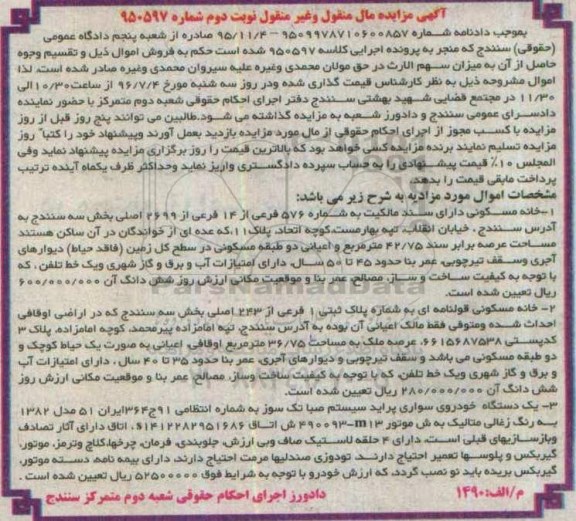 آگهی مزایده مال منقول وغیر منقول نوبت دوم شماره ۹۵۰۵۹۷
بموجب دادنامه شماره ۹۵۰۹۹۷۸۷۱۰۶۰۰۸۵۷ – ۹۵/۱۱/۴ صادره از شعبه پنجم دادگاه عمومی
(حقوقی) سنندج که منجر به پرونده اجرایی کلاسه ۹۵۰۵۹۷ شده است حکم به فروش اموال ذیل و تقسیم وجوه
حاصل از آن به میزان سهم الارث در حق مولان محمدی وغیره علیه سیروان محمدی وغیره صادر شده است. لذا
اموال مشروحه ذیل به نظر کارشناس قیمت گذاری شده ودر روز سه شنبه مورخ ۹۶/۷/۴ از ساعت ۱۰/۳۰ الی
۱۱/۳۰ در مجتمع قضایی شهید بهشتی سنندج دفتر اجرای احکام حقوقی شعبه دوم متمرکز با حضور نماینده
دادسرای عمومی سنندج و دادورز شعبه به مزایده گذاشته می شود.طالبین می توانند پنج روز قبل از روز
مزایده با کسب مجوز از اجرای احکام حقوقی از مال مورد مزایده بازدید بعمل آورند وپیشنهاد خود را کتبا" روز
مزایده تسلیم نمایند برنده مزایده کسی خواهد بود که بالاترین قیمت را روز برگزاری مزایده پیشنهاد نماید وفی
المجلس ۱۰٪ قیمت پیشنهادی را به حساب سپرده دادگستری واریز نماید وحداکثر ظرف یکماه آینده ترتیب
پرداخت مابقی قیمت را بدهد.
مشخصات اموال مورد مزادیه به شرح زیر می باشد:
۱-خانه مسکونی دارای سند مالکیت به شماره ۵۷۶ فرعی از ۱۴ فرعی از ۲۶۹۹ اصلی بخش سه سنندج به
آدرس سنندج ، خیابان انقلاب، تپه بهارمست،کوچه اتحاد، پلاک۱۱،که عده ای از خواندگان در آن ساکن هستند
مساحت عرصه برابر سند ۴۲/۷۵ مترمربع و اعیانی دو طبقه مسکونی در سطح کل زمین (فاقد حیاط) دیوارهای
آجری وسقف تیرچوبی، عمر بنا حدود ۴۵ تا ۵۰ سال، دارای امتیازات آب و برق و گاز شهری ویک خط تلفن ، که
با توجه به کیفیت ساخت و ساز، مصالح، عمر بنا و موقعیت مکانی ارزش روز شش دانگ آن ۶۰۰/۰۰۰/۰۰۰
ریال تعیین شده است.
۲- خانه مسکونی قولنامه ای به شماره پلاک ثبتی ۱ فرعی از ۲۴۳ اصلی بخش سه سنندج که در اراضی اوقافی
احداث شده ومتوفی فقط مالک اعیانی آن بوده به آدرس سنندج، تپه امامزاده پیرمحمد، کوچه امامزاده، پلاک ۳
کدپستی ۶۶۱۵۶۸۷۵۳۸، عرصه ملک به مساحت ۳۶/۷۵ مترمربع اوقافی، اعیانی به صورت یک حیاط کوچک و
دو طبقه مسکونی می باشد و سقف تیرچوبی و دیوارهای آجری، عمر بنا حدود ۳۵ تا ۴۰ سال ، دارای امتیازات آب
و برق و گاز شهری ویک خط تلفن، که با توجه به کیفیت ساخت وساز، مصالح، عمر بنا و موقعیت مکانی ارزش روز
شش دانگ آن ۲۸۰/۰۰۰/۰۰۰ ریال تعیین شده است.
۳- یک دستگاه خودروی سواری پراید سیستم صبا تک سوز به شماره انتظامی ۹۱ج۳۶۴ایران ۵۱ مدل ۱۳۸۲
به رنگ زغالی متالیک به ش موتور m۱۳-۴۹۰۰۹۳ ش اتاق s۱۴۱۲۲۸۲۹۵۱۶۸۶، اتاق دارای آثار تصادف
وبازسازیهای قبلی است، دارای ۴ حلقه لاستیک صاف وبی ارزش، جلوبندی، فرمان، چرخها،کلاچ وترمز، موتور،
گیربکس و پلوسها تعمیر احتیاج دارند، تودوزی صندلیها مرمت احتیاج دارند، دارای بیمه نامه، دسته موتور،
گیربکس بریده باید نو نصب گردد، که ارزش خودرو با توجه به شرایط فوق ۵۲۵۰۰۰۰۰ ریال تعیین شده است .
م/الف:۱۴۹۰ دادورز اجرای احکام حقوقی شعبه دوم متمرکز سنندج